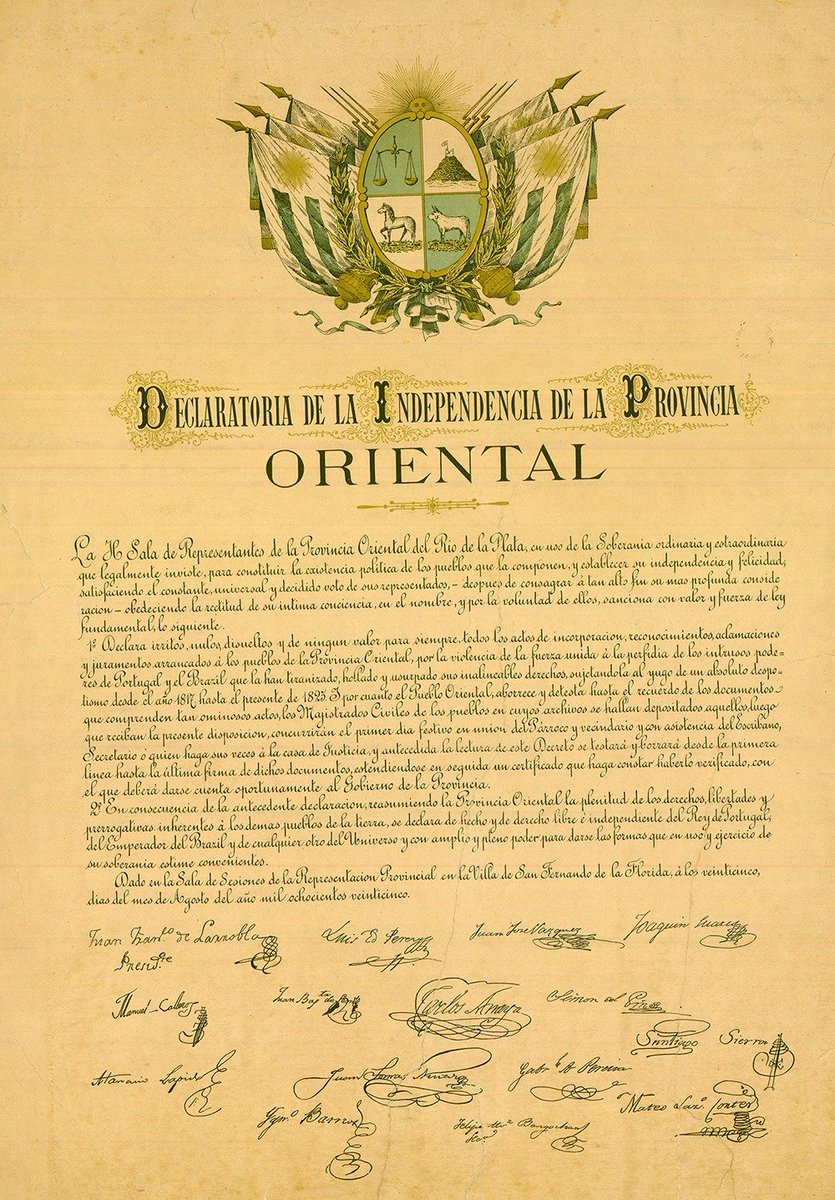 DECLARATORIA DE LA INDEPENDENCIA DE LA PROVINCIA
ORIENTAL
La H Sala de Representantes de la Provincia Oriental del Rio de la Plata, en uso de la Soberania ordinaria y estraordinaria
que legalmente inviste, para constituir la existencia politica de los pueblos que la componen, y establecer su independencia y felicidad,
satisfaciendo el constante, universal y decidido voto de sus representados,– despues de consagrar á tan alto fin su mas profunda conside
racion – obedeciendo la rectitud de su intima conciencia, en el nombre, y por la voluntad de ellos, sanciona con valor y fuerza de ley
fundamental, lo siguiente.
1º Declara irritos, nulos, disueltos y de ningun valor para siempre, todos los actos de incorporacion, reconocimientos, aclamaciones
y juramentos, arrancados á los pueblos de la Provincia Oriental, por la violencia de la fuerza unida à la perfidia de los intrusos pode=
res de Portugal y el Brazil que la han tiranizado, hollado y usurpado sus inalineables derechos, sujetandola al yugo de un absoluto despo=
tismo, desde el año 1817, hasta el presente de 1825. I por cuanto el Pueblo Oriental, aborrece y detesta hasta el recuerdo de los documentos
que comprenden tan ominosos actos, los Magistrados Civiles de los pueblos en cuyos archivos se hallan depositados aquellos, luego
que reciban la presente disposicion, concurrirán el primer dia festivo en union del Párroco y vecindario y con asistencia del Escribano,
Secretario ó quien haga sus veces à la casa de Justicia, y antecedida la lectura de este Decreto se testará y borrará desde la primera
linea hasta la última firma de dichos documentos, estendiendose en seguida un certificado que haga constar haberlo verificado, con
el que deberá darse cuenta oportunamente al Gobierno de la Provincia.
2º En consecuencia de la antecedente declaracion, reasumiendo la Provincia Oriental la plenitud de los derechos, libertades y
prerrogativas inherentes à los demas pueblos de la tierra, se declara de hecho y de derecho libre é independiente del Rey de Portugal,
del Emperador del Brazil y de cualquier otro del Universo y con amplio y pleno poder para darse las formas que en uso y ejercicio de
su soberania estime convenientes.
Dado en la Sala de Sesiones de la Representacion Provincial en la Villa de San Fernando de la Florida, á los veinticinco,
dias del mes de Agosto del año mil ochocientos veinticinco.
Juan Franº de Larrobla Luis Ed Perez Juan Jose Vazquez Joaquin Suarez
Presidte
Manuel Calleros Juan Bapta de Carlos Anaya Simon del
Santiago Sierra
Atanacio Lapido Juan Tomas Nuñez Gabrl A Pereira
Mateo Lazº Cortez
Ygnº Barrios Felipe Mel Bengochea